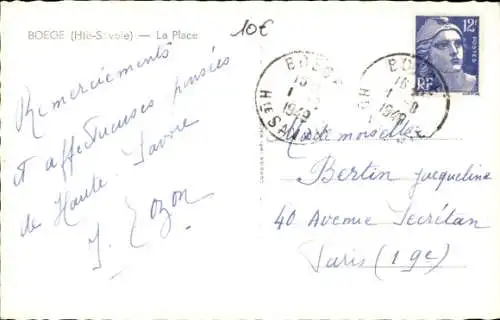 BOEGE (Hte-Savoie) — La Place
10€
Remerciements
et affectueuses pensées
de Haute-Savoie
12F
POSTES
RF
BOEGE
1949
BOEGE
1949
Mademoiselle
Bertin Jacqueline
40 Avenue Secrétan
Paris (19e)